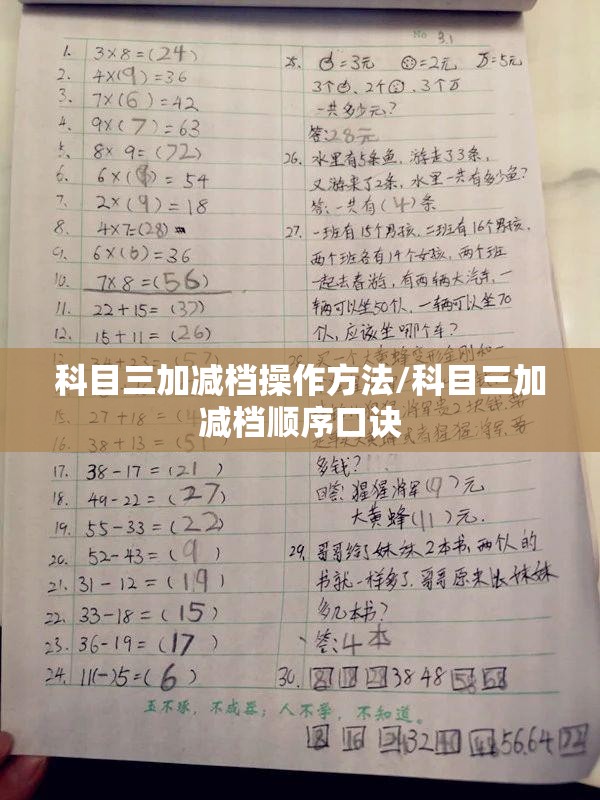 No 3.1
1. 3×8=(24)
2. 4×(9)=36
3. 7×(6)=42
4. 9×(7)=63
5. 8×9=(72)
6. 6×(9)=54
7. 2×(9)=18
8. 4×7=(28)
9. 6×(6)=36
10. 7×8=(56)
11. 22+15=(37)
12. 15+11=(26)
科目三加减档操作方法/科目三加
减档顺序口诀
15. 27+18=(
16. 38+13=(51)
17. 38-17=(21)
18. 49-22=(27)
19. 55-33=(22)
20. 52-43=(9)
21. 31-12=(19)
22. 33-18=(15)
23. 36-19=(17)
24. 11(-)5=(6)
25. =3元 =2元 =5元
3个 、2个 、3个
一共多少元?
答:28元
26. 水里有5条鱼,游走了3条,
又游来了2条,水里一共有多少鱼?
答:一共有(4)条
27. 一班有15个男孩,二班有16个男孩,
两个班各有14个女孩,两个班
一起去春游,有两辆大汽车,一
辆可以坐50个人,一辆可以坐70
个人,应该坐哪个车?
多钱?
回答:猩猩将军(9)元
大黄蜂(11)元.
29. 哥哥给了妹妹2本书,两个人的
书就一样多了.哥哥原来比妹妹
多几本书?
答:4本
30. 38 48
32 56.64
玉不琢,不成器;人不学,不知道。